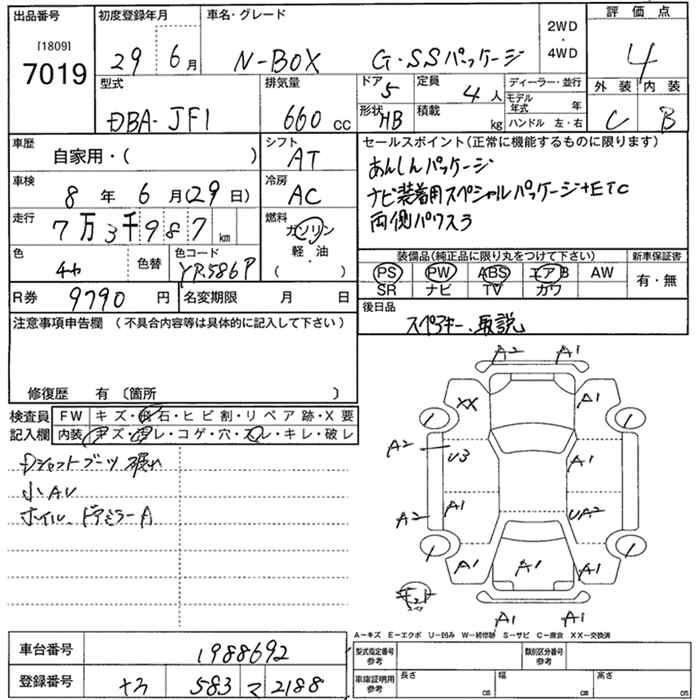 出品番号 初度登録年月 車名・グレード 2WD・4WD 評価点
[1809]
7019 29 6月 N-BOX G・SSパッケージ 4
型式 排気量 ドア 5 定員 4人 ディーラー・並行 外装 内装
DBA-JF1 660cc 形状 HB 積載 kg モデル年式 年 C B
ハンドル 左・右
車歴 自家用・( ) シフト AT セールスポイント(正常に機能するものに限ります)
あんしんパッケージ
車検 8年 6月(29日) 冷房 AC ナビ装着用スペシャルパッケージ+ETC
走行 7万3千987km 燃料 ガソリン 両側パワスラ
軽・油
( )
色 チャ 色替 色コード YR586P 装備品(純正品に限り丸をつけて下さい) 新車保証書
PS PW ABS エアB AW 有・無
R券 9790円 名変期限 月 日 SR ナビ TV カワ
注意事項申告欄 (不具合内容等は具体的に記入して下さい) 後日品
スペアキー、取説
修復歴 有 〔箇所 〕
検査員 FW キズ・飛石・ヒビ割・リペア跡・X要
記入欄 内装 キズ・汚レ・コゲ・穴・スレ・キレ・破レ
Dシャフトブーツ破れ
小AU
ホイル、ドアミラーA
A2 A1
XX A1
A2 U3 A1
A2 A1 UA2
A1 A1 A1
A1 A1
A―キズ E―エクボ U―凹み W―補修跡 S―サビ C―腐食 XX―交換済
車台番号 1988692 型式指定番号 参考 類別区分番号 参考
登録番号 583 マ 2188 車庫証明用 参考 長さ cm 幅 cm 高さ cm